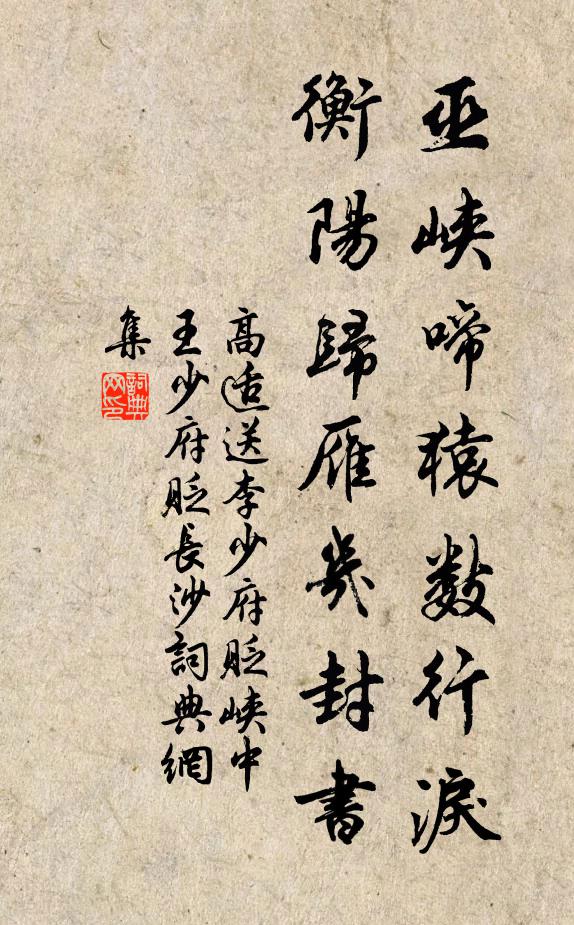 巫峽啼猿數行淚
衡陽歸雁幾封書
高適送李少府貶峽中
王少府貶長沙詞典網
集
詞典網印